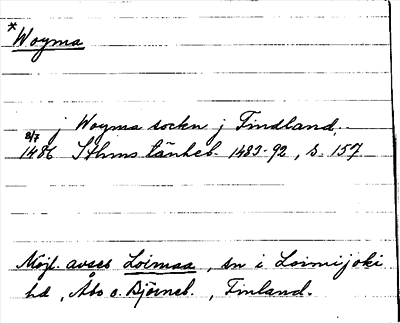 *Woyma
j Woyma sockn j Findland.
8/7 1486 Sthms tänkeb. 1483-92, s. 157
Möjl. avses Loimaa, sn i Loimijoki
hd, Åbo o. Björneb., Finland.